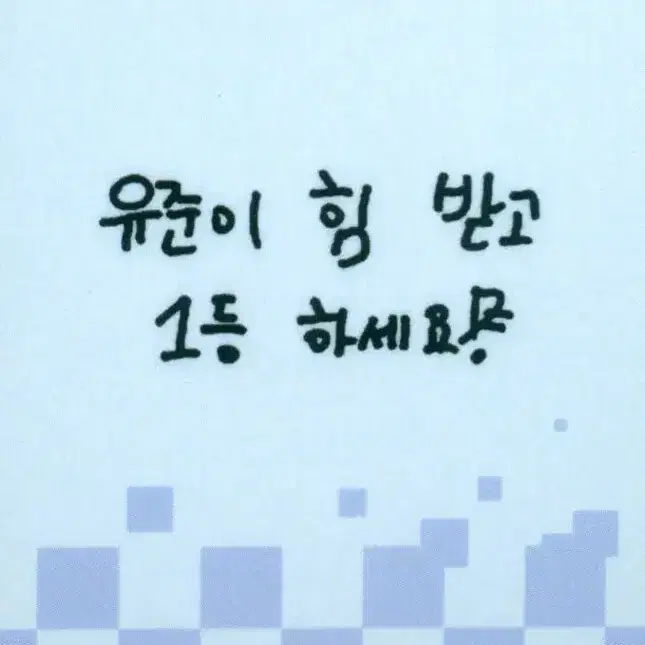 유준이 힘 받고
1등 하세요